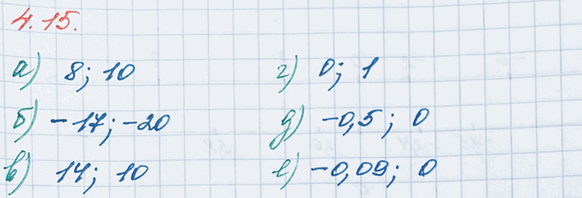 4.15.
а) 8; 10 г) 0; 1
б) -17; -20 д) -0,5; 0
в) 14; 10 е) -0,09; 0